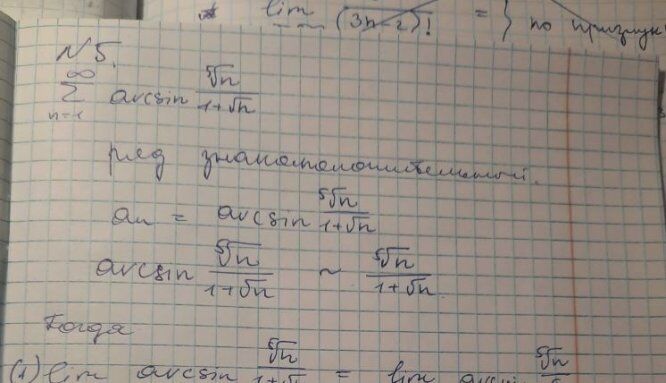 lim (3n-2)! = } по признаку
N 5.
∞
∑ arcsin ⁵√n / (1+√n)
n=1
ряд знакоположительный.
aₙ = arcsin ⁵√n / (1+√n)
arcsin ⁵√n / (1+√n) ~ ⁵√n / (1+√n)
Когда
(1) lim arcsin ⁵√n / (1+√n) = lim arcsin ⁵√n